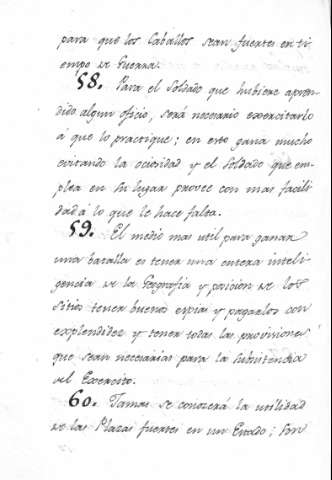 para que los Caballos sean fuertes en ti
empo de Guerra.
58. Para el Soldado que hubiere apren
dido algun oficio, será necesario exercitarlo
á que lo practique; en esto gana mucho
evitando la ociosidad y el Soldado que em-
plea en su lugar provee con mas facili
dad á lo que le hace falta.
59. El medio mas util para ganar
una batalla es tener una entera inteli-
gencia de la Geografia y posicion de los
Sitios tener buenos espias y pagarlos con
explendidez y tener todas las provisiones
que sean necesarias para la subsistencia
del Exercito.
60. Jamas se conocerá la utilidad
de las Plazas fuertes en un Estado; Son